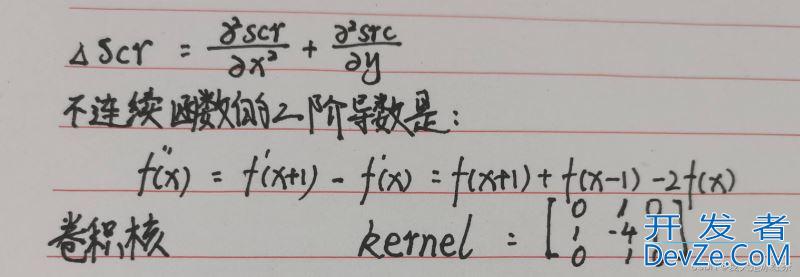 △scr = ∂²scr/∂x² + ∂²src/∂y
不连续函数的二阶导数是：
f''(x) = f'(x+1) - f'(x) = f(x+1) + f(x-1) - 2f(x)
卷积核 kernel : [0 1 0
1 -4
0 1
开发者
DevZe.CoM